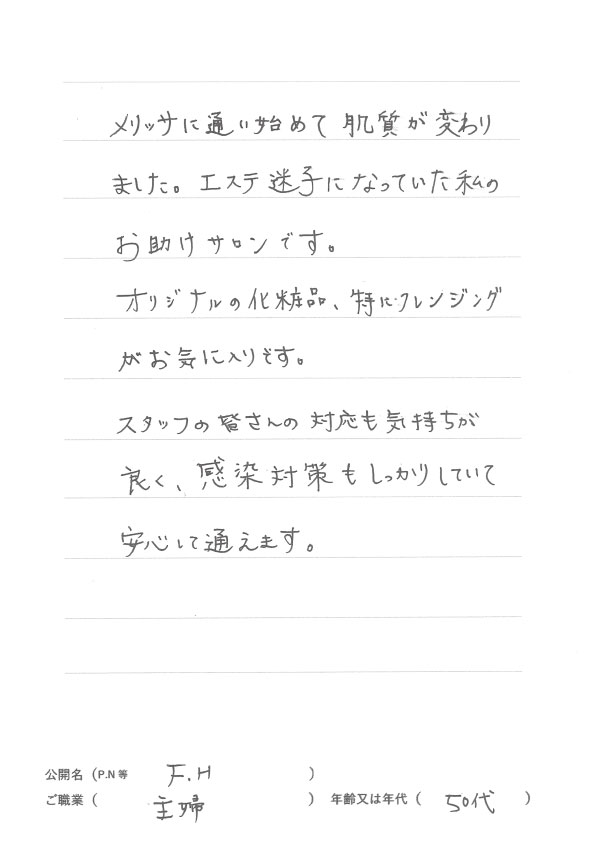 メリッサに通い始めて肌質が変わり
ました。エステ迷子になっていた私の
お助けサロンです。
オリジナルの化粧品、特にクレンジング
がお気に入りです。
スタッフの皆さんの対応も気持ちが
良く、感染対策もしっかりしていて
安心して通えます。
公開名（P.N等 F.H ）
ご職業（ 主婦 ） 年齢又は年代（ 50代 ）